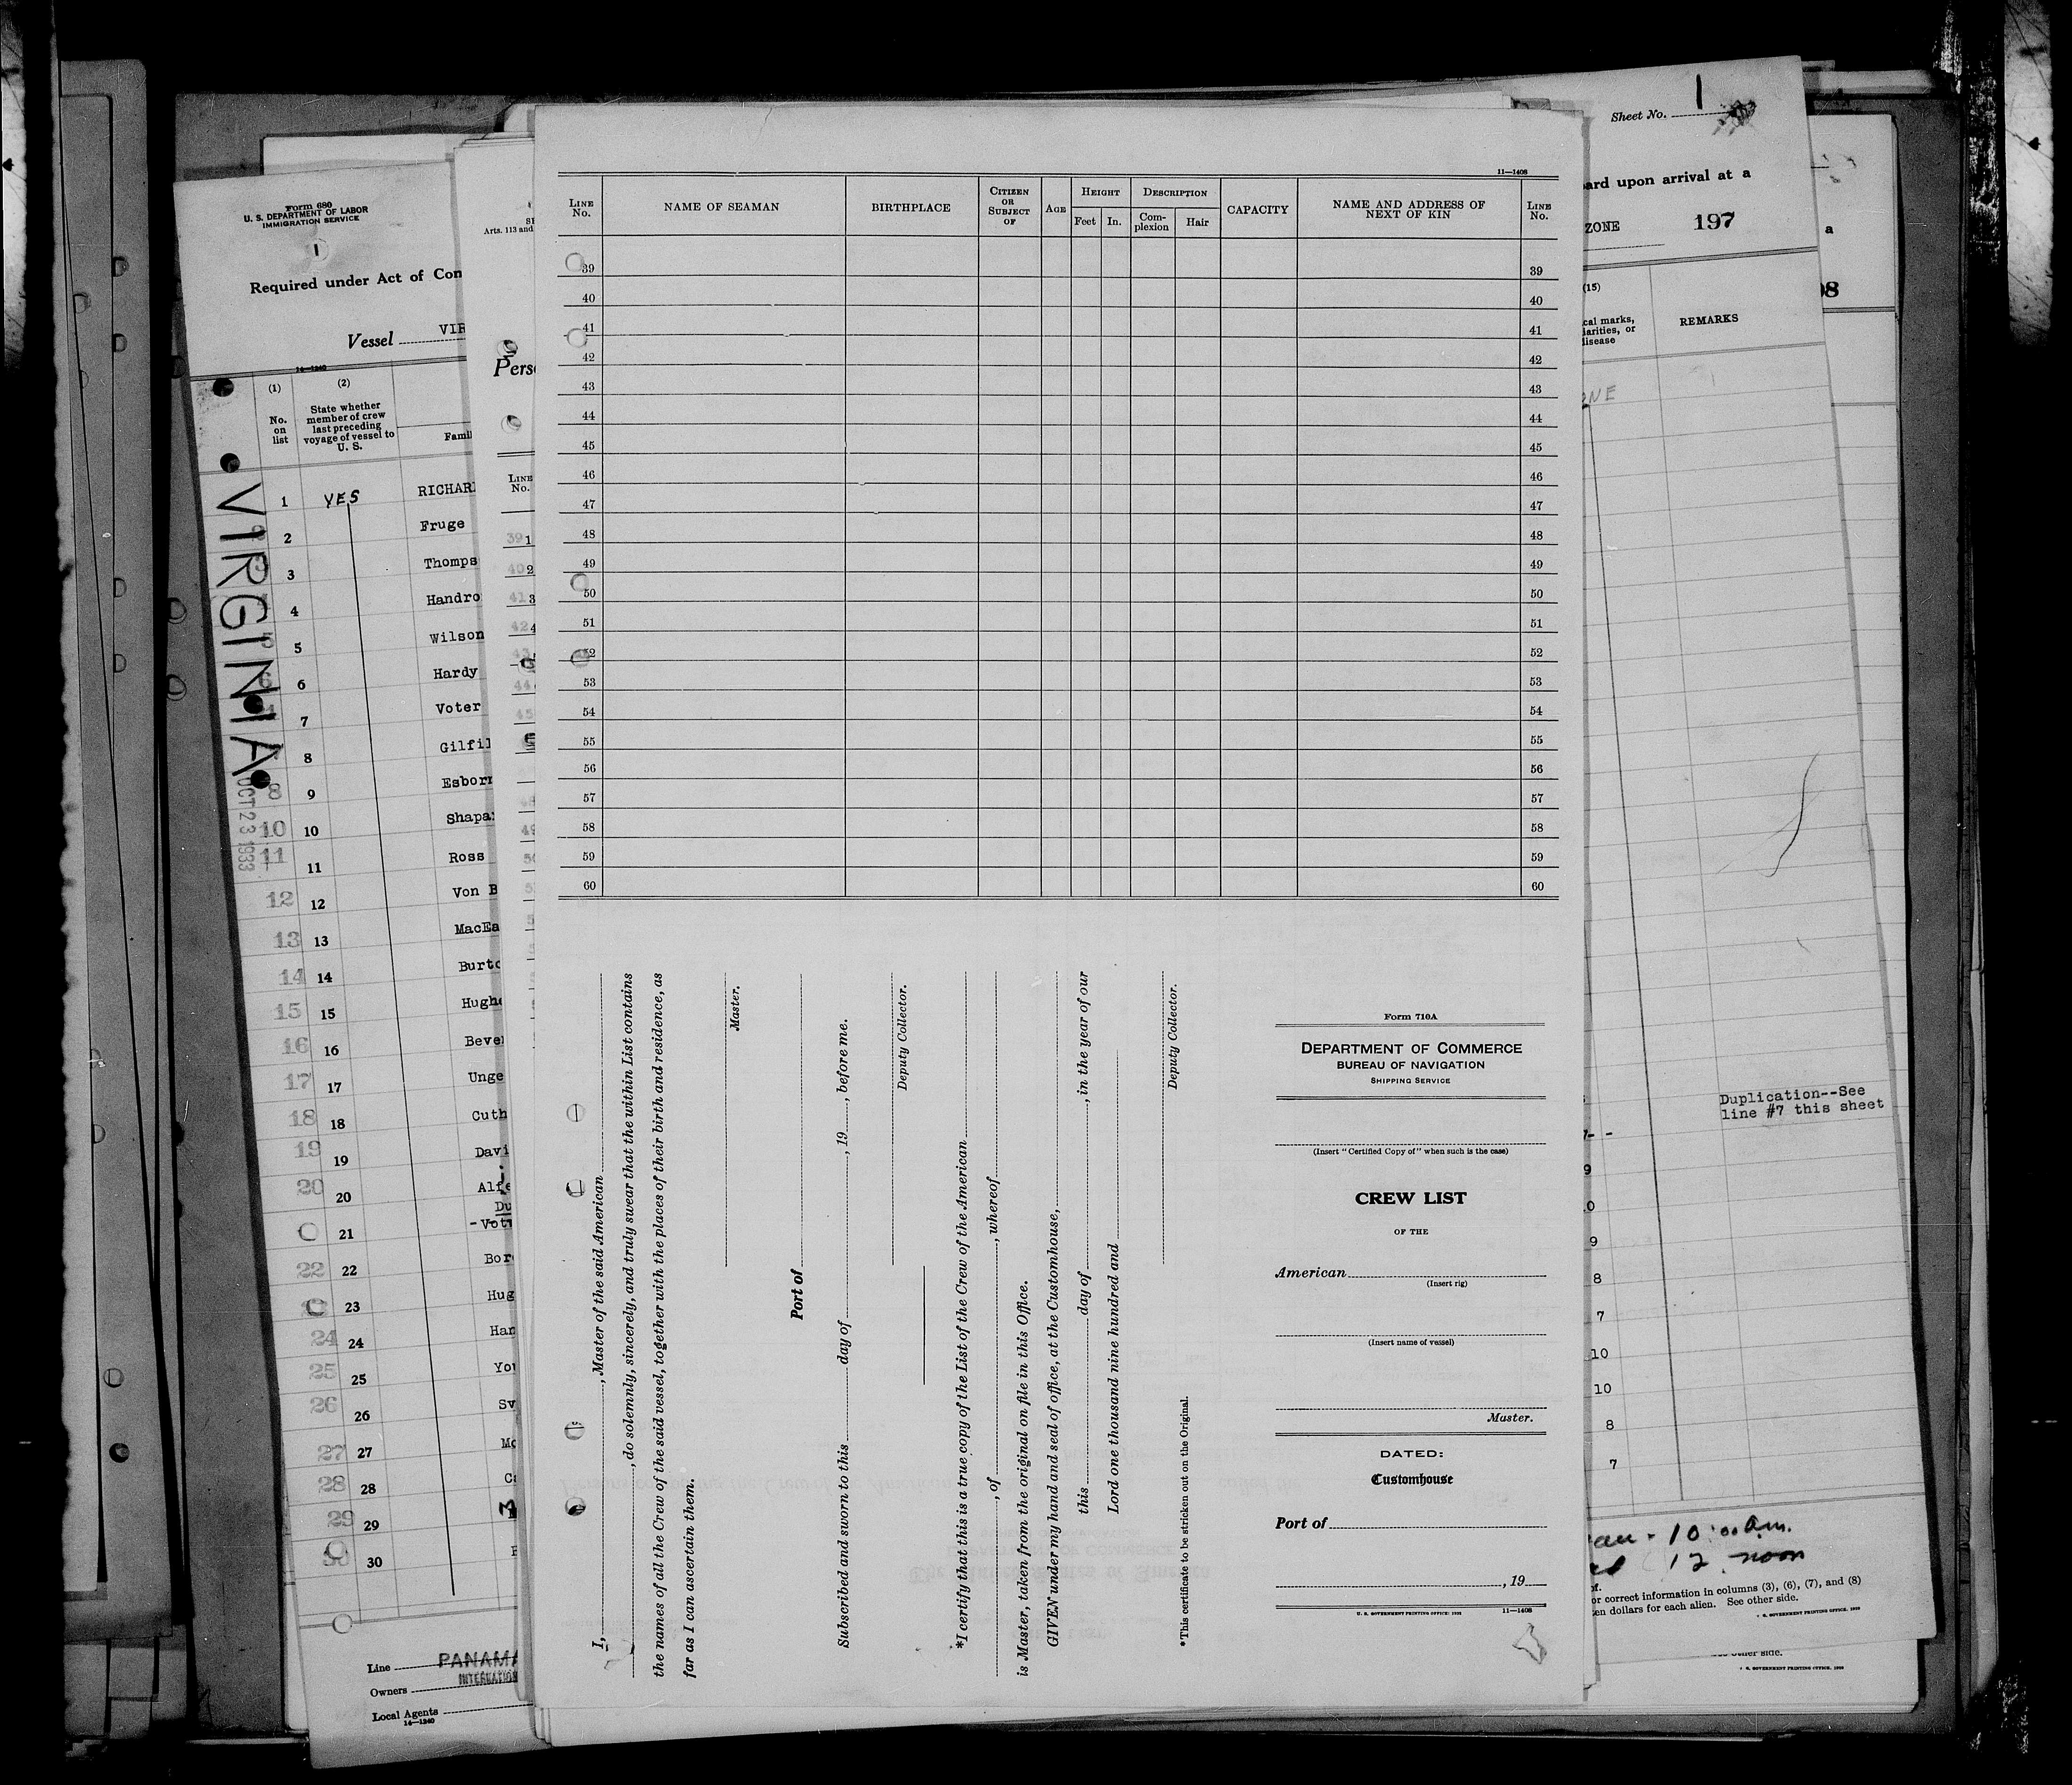 Form 680
U. S. DEPARTMENT OF LABOR
IMMIGRATION SERVICE
1
Required under Act of Con
Vessel VIR
14—1240
(1)
No. on list
(2)
State whether member of crew last preceding voyage of vessel to U. S.
Famil
VIRGINIA
OCT 23 1933
1 YES RICHAR
2 Fruge
3 Thomps
4 Handro
5 Wilson
6 Hardy
7 Voter
8 Gilfil
9 Esborn
10 Shapa
11 Ross
12 Von B
13 MacEa
14 Burto
15 Hughe
16 Beve
17 Unge
18 Cuth
19 Davi
20 Alfe
Du
21 -Vot
22 Bor
23 Hug
24 Han
25 You
26 Sv
27 Mc
28 Ca
29
30
Line PANAMA
INTERNATION
Owners
Local Agents
14—1240
Arts. 113 and
Pers
LINE No.
1
2
3
4
11—1408
LINE No.
NAME OF SEAMAN
BIRTHPLACE
CITIZEN OR SUBJECT OF
AGE
HEIGHT
Feet In.
DESCRIPTION
Complexion Hair
CAPACITY
NAME AND ADDRESS OF NEXT OF KIN
LINE No.
39 39
40 40
41 41
42 42
43 43
44 44
45 45
46 46
47 47
48 48
49 49
50 50
51 51
52 52
53 53
54 54
55 55
56 56
57 57
58 58
59 59
60 60
I, , Master of the said American
, do solemnly, sincerely, and truly swear that the within List contains
the names of all the Crew of the said vessel, together with the places of their birth and residence, as
far as I can ascertain them.
Master.
Port of
Subscribed and sworn to this day of , 19 , before me.
Deputy Collector.
*I certify that this is a true copy of the List of the Crew of the American
, of , whereof
is Master, taken from the original on file in this Office.
GIVEN under my hand and seal of office, at the Customhouse,
this day of , in the year of our
Lord one thousand nine hundred and
Deputy Collector.
*This certificate to be stricken out on the Original.
Form 710A
DEPARTMENT OF COMMERCE
BUREAU OF NAVIGATION
SHIPPING SERVICE
(Insert "Certified Copy of" when such is the case)
CREW LIST
OF THE
American
(Insert rig)
(Insert name of vessel)
Master.
DATED:
Customhouse
Port of
, 19
U. S. GOVERNMENT PRINTING OFFICE: 1932 11—1408
Sheet No. 1
ard upon arrival at a
ZONE 197
a
98
(15)
cal marks,
iarities, or
disease
REMARKS
ONE
Duplication--See
line #7 this sheet
7- -
9
10
9
8
7
10
10
8
7
10:00 a.m.
12 noon
or correct information in columns (3), (6), (7), and (8)
en dollars for each alien. See other side.
U. S. GOVERNMENT PRINTING OFFICE: 1932
other side.
U. S. GOVERNMENT PRINTING OFFICE: 1932